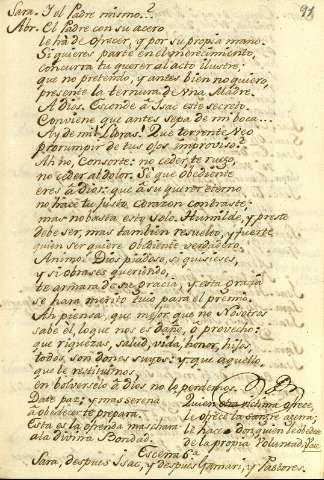 97
Sara. Y el Padre mismo...?
Abr. El Padre con su acero
le há de ofrecer, y por su propia mano.
Si quieres parte en el merecimiento,
concurra tu querer al acto ilustre:
que no pretendo, y antes bien no quiero,
presente la ternura de una Madre.
A Dios. Esconde á Isac este secreto.
Conviene que antes sepa de mi boca...
Ay de mi! Lloras? Que torrente veo
prorumpir de tus ojos improviso?
Ah no, Consorte: no ceder, te ruego,
no ceder al dolor. Sé que obediente
eres á Dios: que á su querer eterno
no hace tu justo corazon contraste;
mas no basta esto solo. Humilde, y presto
debe ser, mas tambien resuelto, y fuerte
quien ser quiere obediente verdadero.
Animo. Dios piadoso, si quisieses,
y si obrases queriendo,
te armará de su gracia, y esta gracia
se hará merito tuio para el premio.
Ah piensa, que mejor que no Nosotros
sabe él, lo que nos es daño, ó provecho:
que riquezas, salud, vida, honor, hijos,
todos, son dones suyos: y que aquello,
que le restituimos,
en bolverselo á Dios no le perdemos.
Date paz; y mas serena
á obedecer te prepara.
Esta es la ofrenda mas chara
a la Divina Bondad.
Quien otra victima ofrece,
le ofrece la sangre agena;
le hace don quien le obedece
de la propia Voluntad.
Escena 6ª
Sara, despues Isac, y despues Gamari, y Pastores.